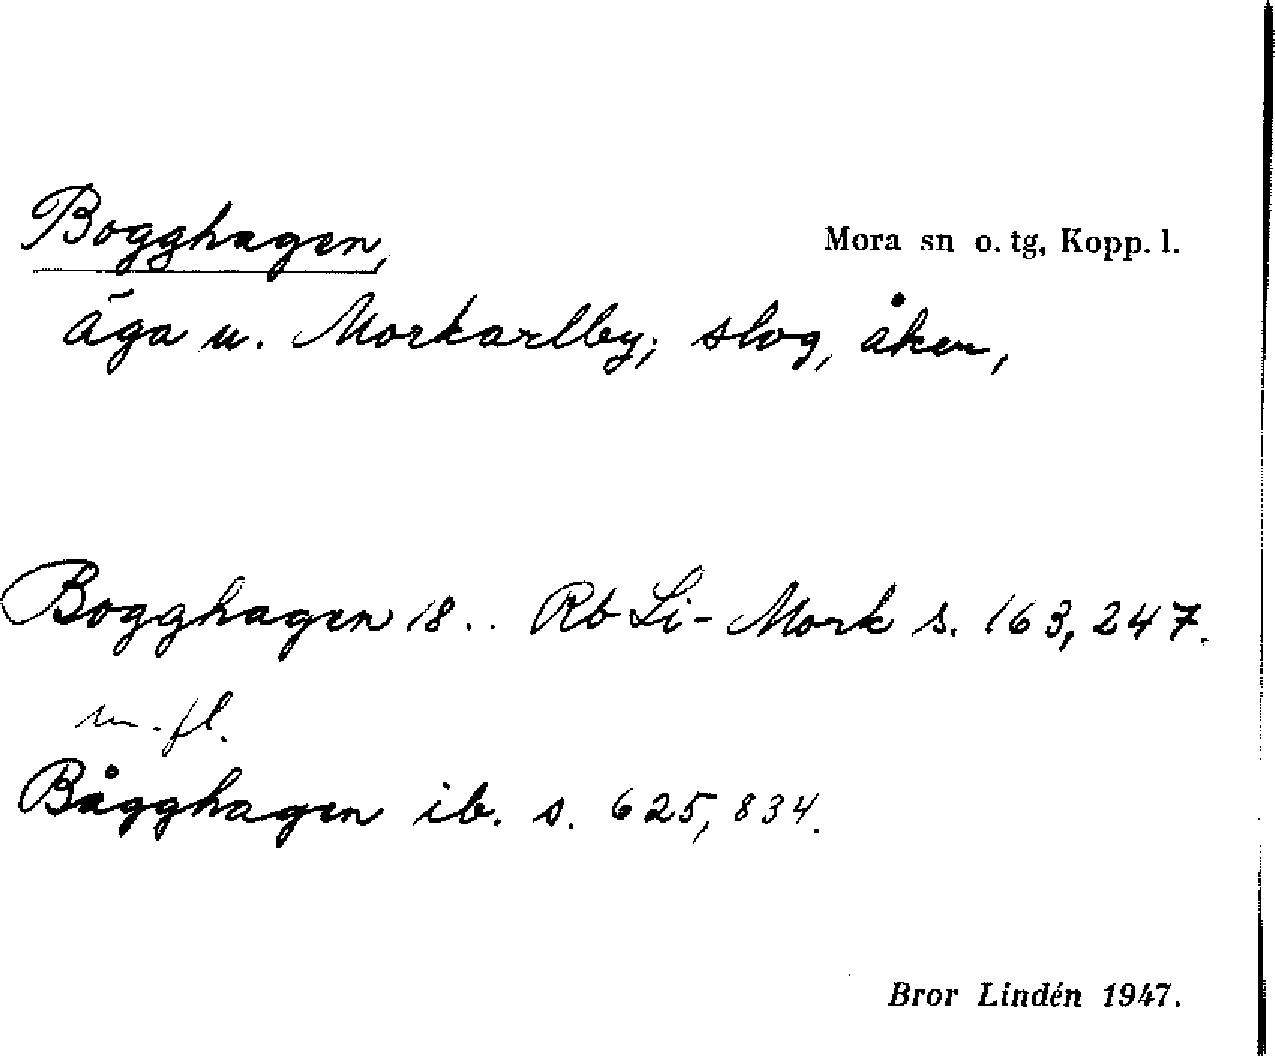 Bogghagen,
Mora sn o. tg, Kopp. l.
äga u. Morkarlby; slog, åker,
Bogghagen 18.. Rb Li-Mork s. 163, 247.
m. fl.
Bågghagen ib. s. 625, 834.
Bror Lindén 1947.